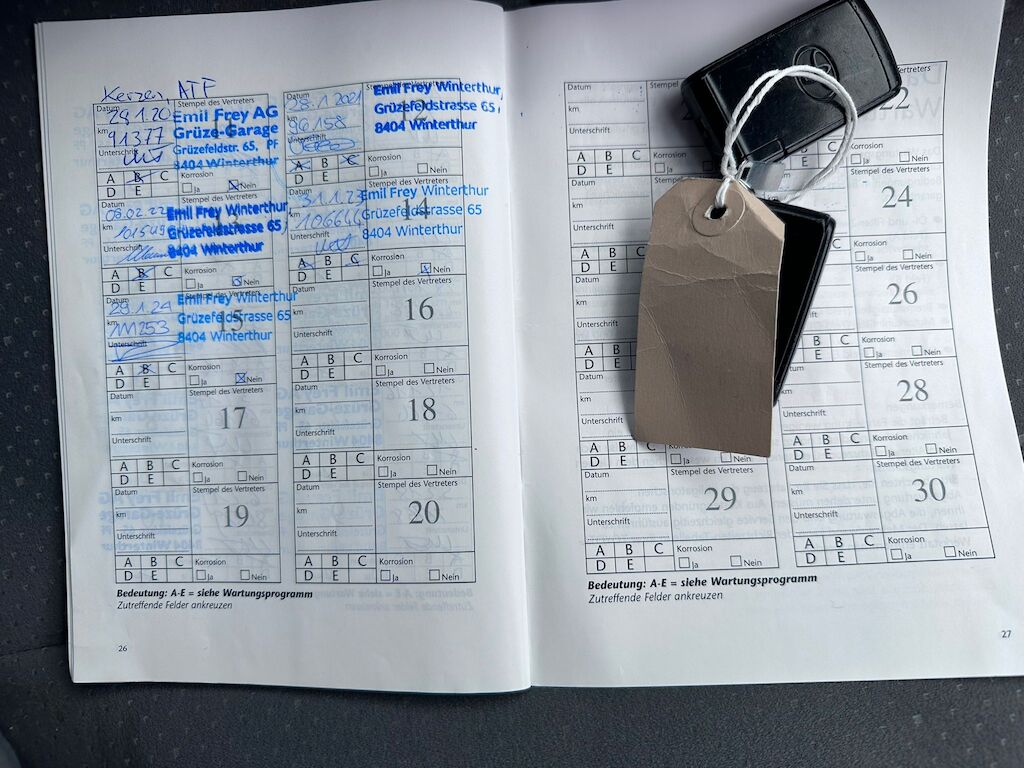 Kerzen, ATF
Datum
29.1.20
km
91377
Unterschrift
Stempel des Vertreters
Emil Frey AG
Grüze-Garage
Grüzefeldstr. 65, PF
8404 Winterthur
A B C
D E
Korrosion
Ja Nein
Datum
28.1.2021
km
96158
Unterschrift
Stempel des Vertreters
12
Emil Frey Winterthur
Grüzefeldstrasse 65
8404 Winterthur
A B C
D E
Korrosion
Ja Nein
03.02.22
101549
Unterschrift
Emil Frey Winterthur
Grüzefeldstrasse 65
8404 Winterthur
A B C
D E
Korrosion
Ja Nein
31.1.23
106644
Unterschrift
14
Emil Frey Winterthur
Grüzefeldstrasse 65
8404 Winterthur
A B C
D E
Korrosion
Ja Nein
Datum
29.1.24
111253
Unterschrift
15
Emil Frey Winterthur
Grüzefeldstrasse 65
8404 Winterthur
A B C
D E
Korrosion
Ja Nein
Datum
km
Unterschrift
Stempel des Vertreters
16
A B C
D E
Korrosion
Ja Nein
Datum
km
Unterschrift
Stempel des Vertreters
17
A B C
D E
Korrosion
Ja Nein
Datum
km
Unterschrift
Stempel des Vertreters
18
A B C
D E
Korrosion
Ja Nein
Datum
km
Unterschrift
Stempel des Vertreters
19
A B C
D E
Korrosion
Ja Nein
Datum
km
Unterschrift
Stempel des Vertreters
20
A B C
D E
Korrosion
Ja Nein
Bedeutung: A-E = siehe Wartungsprogramm
Zutreffende Felder ankreuzen
26
Datum
km
Unterschrift
A B C
D E
22
Nein
Datum
km
Unterschrift
A B C
D E
24
Korrosion
Ja Nein
Datum
km
Unterschrift
A B
D E
Stempel des Vertreters
26
B C
E
Korrosion
Ja Nein
Datum
km
Unterschrift
A B
D E
Stempel des Vertreters
28
Unterschrift
A B C
D E
Korrosion
Ja Nein
Datum
km
Unterschrift
Stempel des Vertreters
29
A B C
D E
Korrosion
Ja Nein
Datum
km
Unterschrift
Stempel des Vertreters
30
A B C
D E
Korrosion
Ja Nein
Bedeutung: A-E = siehe Wartungsprogramm
Zutreffende Felder ankreuzen
27